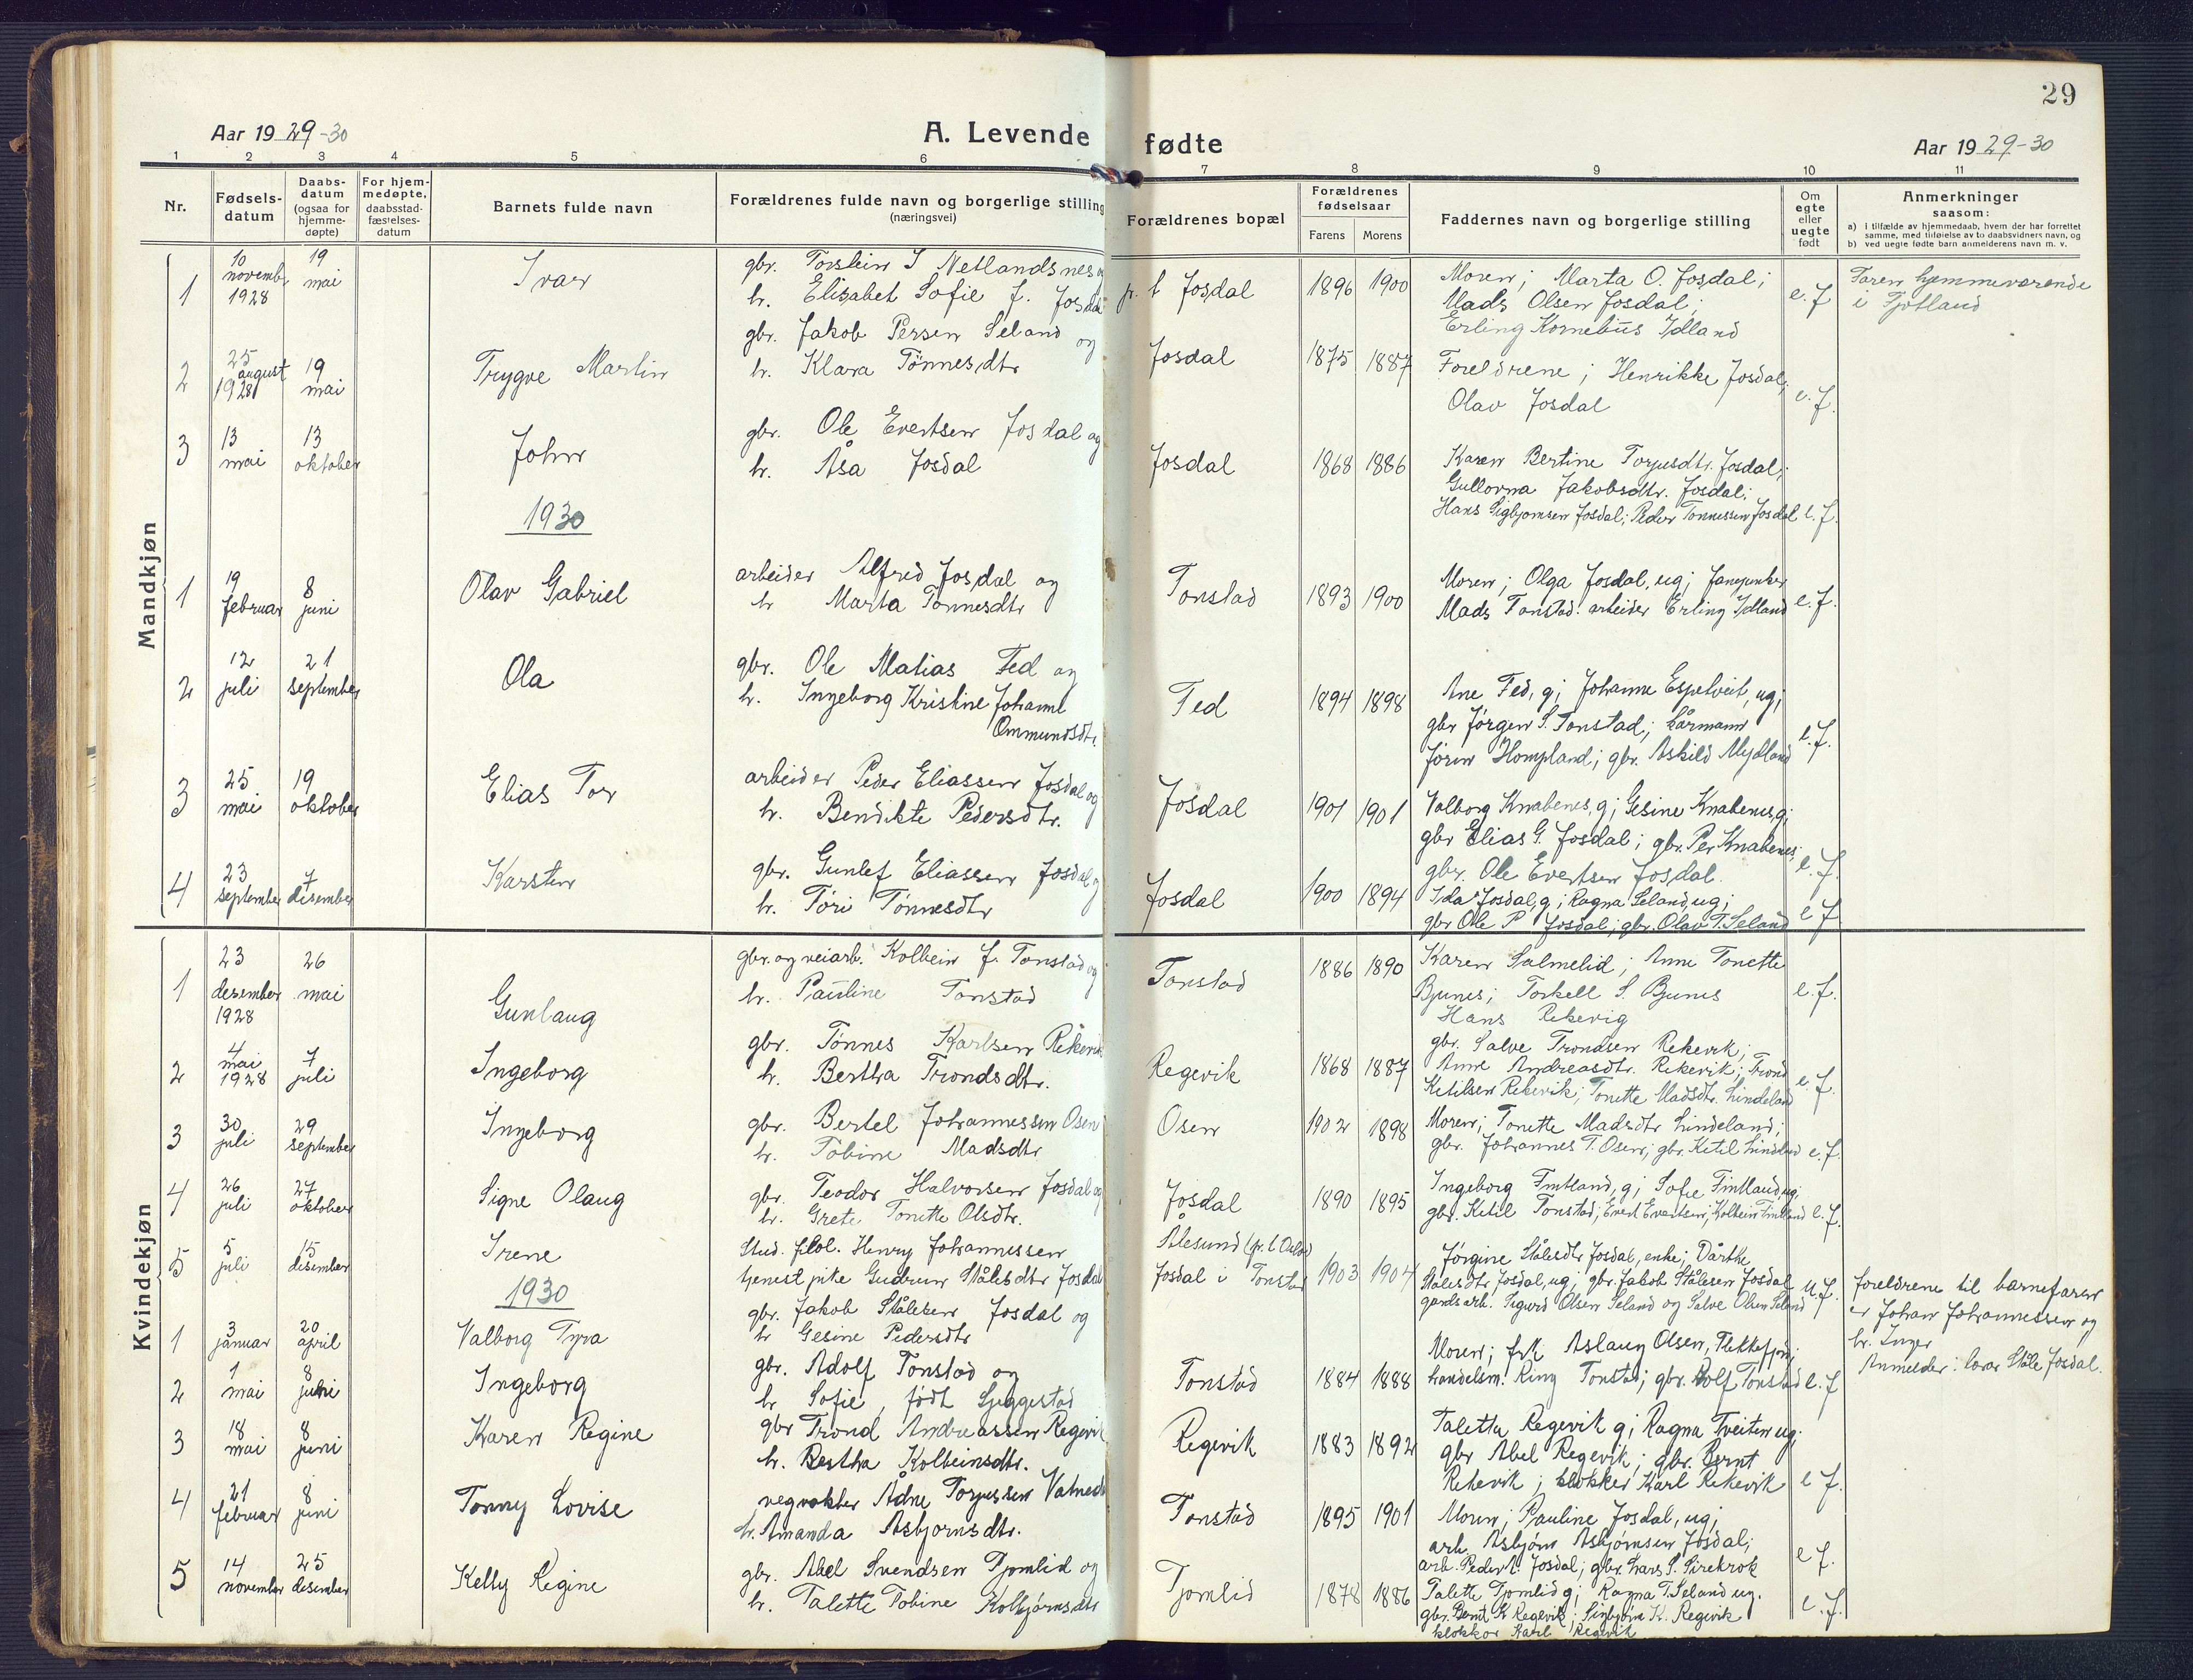 29
Aar 1929-30
A. Levende fødte
Aar 1929-30
1 2 3 4 5 6 7 8 9 10 11
Nr.
Fødsels-
datum
Daabs-
datum
(ogsaa for
hjemme-
døpte)
For hjem-
medøpte,
daabsstad-
fæstelses-
datum
Barnets fulde navn
Forældrenes fulde navn og borgerlige stilling
(næringsvei)
Forældrenes bopæl
Forældrenes
fødselsaar
Farens Morens
Faddernes navn og borgerlige stilling
Om
egte
eller
uegte
født
Anmerkninger
saasom:
a) i tilfælde av hjemmedaab, hvem der har forrettet
samme, med tilføielse av to daabsvidners navn, og
b) ved uegte fødte barn anmelderens navn m. v.
Mandkjøn
1
10
novembr
1928
19
mai
Ivar
gbr. Torstein I Netlandsnes
h. Elisabet Sofie J. Josdal
Josdal
1896 1900
Moren; Marta O. Josdal;
Mads Olsen Josdal;
Erling Kornelius Ydland
e. f
Faren hjemmeværende
i Tjotland
2
25
august
1928
19
mai
Trygve Martin
gbr. Jakob Persen Seland og
h. Klara Tønnesdtr
Josdal
1875 1887
Foreldrene; Henrikke Josdal;
Olav Josdal
e. f.
3
13
mai
13
oktober
John
gbr. Ole Evertsen Josdal og
h. Åsa Josdal
Josdal
1868 1886
Karen Bertine Torjusdtr. Josdal;
Gullorma Jakobsdtr. Josdal;
Hans Sigbjørnsen Josdal; Peder Tønnessen Josdal
e. f.
1930
1
19
februar
8
juni
Olav Gabriel
arbeider Alfred Josdal og
h Marta Tønnesdtr
Tonstad
1893 1900
Moren; Olga Josdal, ug;
Mads Tonstad. arbeider Erling Ydland
e. f.
2
12
juli
21
september
Ola
gbr. Ole Matias Fed og
h. Ingeborg Kristine Johanne
Ommundsdtr.
Fed
1894 1898
Ane Fed, g; Johanne Espetveit, ug;
gbr Jørgen S. Tonstad; Lårmann
Jørin Hompland; gbr. Askild Mydland
e. f.
3
25
mai
19
oktober
Elias Tor
arbeider Peder Eliassen Josdal og
h. Bendikte Pedersdtr.
Josdal
1901 1901
Valborg Knabenes, g; Gesine Knabenes, g;
gbr Elias G. Josdal; gbr. Per Knabenes;
gbr. Ole Evertsen Josdal.
e. f.
4
23
september
7
desember
Karsten
gbr. Gunlef Eliassen Josdal og
h. Tori Tønnesdtr
Josdal
1900 1894
Ida Josdal, g; Ragna Seland, ug;
gbr Ole P Josdal; gbr. Olav T. Seland
e f
Kvindekjøn
1
23
desember
1928
26
mai
Gunlaug
gbr. og veiarb. Kolbein J. Tonstad og
h. Pauline Tonstad
Tonstad
1886 1890
Karen Salmelid; Anne Tonette
Bjunes; Torkell S. Bjunes
Hans Rekevig
e. f.
2
4
mai
1928
7
juli
Ingeborg
gbr. Tønnes Karlsen Rekevik
h. Bertha Trondsdtr.
Regevik
1868 1887
gbr. Salve Trondsen Rekevik;
Anne Andreasdtr. Rekevik; Trond
Ketilsen Rekevik; Tonette Madsdtr. Lindeland
e. f.
3
30
juli
29
september
Ingeborg
gbr. Bertel Johannessen Osen
h. Tobine Madsdtr
Osen
1902 1898
Moren; Tonette Madsdtr Lindeland;
gbr. Johannes T. Osen; gbr. Ketil Lindeland
e. f.
4
26
juli
27
oktober
Signe Olaug
gbr. Teodor Halvorsen Josdal og
h. Grete Tonette Olsdtr.
Josdal
1890 1895
Ingeborg Fintland, g; Sofie Fintland, ug;
gbr. Ketil Tonstad; Evert Evertsen; Kolbein Fintland
e. f.
5
5
juli
15
desember
Irene
Stud. filol. Henry Johannessen
tjenestpike Gudrun Ståledtr Josdal
Ålesund (p. t. Oslo)
Josdal i Tonstad
1903 1904
Jørgine Ståledtr Josdal, enke; Dårthe
Ståledtr Josdal, ug; gbr. Jakob Stålesen Josdal
gardsarb. Sigurd Olsen Seland og Salve Olsen Seland
u. f.
foreldrene til barnefaren
er Johan Johannessen og
h. Inger
Anmelder: Lars Ståle Josdal.
1930
1
3
januar
20
april
Valborg Tyra
gbr. Jakob Stålesen Josdal og
h Gesine Pedersdtr
2
1
mai
8
juni
Ingeborg
gbr. Adolf Tonstad og
h. Sofie, født Liggestad
Tonstad
1884 1888
Moren; frk Aslaug Olsen, Flekkefjord;
handelsm. King Tonstad; gbr. Rolf Tonstad
e. f
3
18
mai
8
juni
Karen Regine
gbr Trond Andreassen Regevik
h. Bertha Kolbeinsdtr.
Regevik
1883 1892
Taletta Regevik g; Ragna Tveiten ug;
gbr Abel Regevik; gbr. Bernt
Rekevik; klokker Karl Rekevik
e f.
4
21
februar
8
juni
Tonny Lovise
vegvokter Ådne Torjussen Vatnedal
h. Amanda Asbjørnsdtr.
Tonstad
1895 1901
Moren; Pauline Josdal, ug;
arb. Asbjørn Asbjørnsen Josdal;
arb. Peder A. Josdal; gbr. Lars S. Sirekrok
e f.
5
14
november
25
desember
Kelly Regine
gbr. Abel Svendsen Tjomlid og
h. Talette Tobine Kolbjørnsdtr
Tjomlid
1878 1886
Talette Tjomlid g; Ragna T. Seland ug.
gbr. Bernt K Regevik; Sigbjørn K. Regevik
klokker Karl Regevik
e. f.